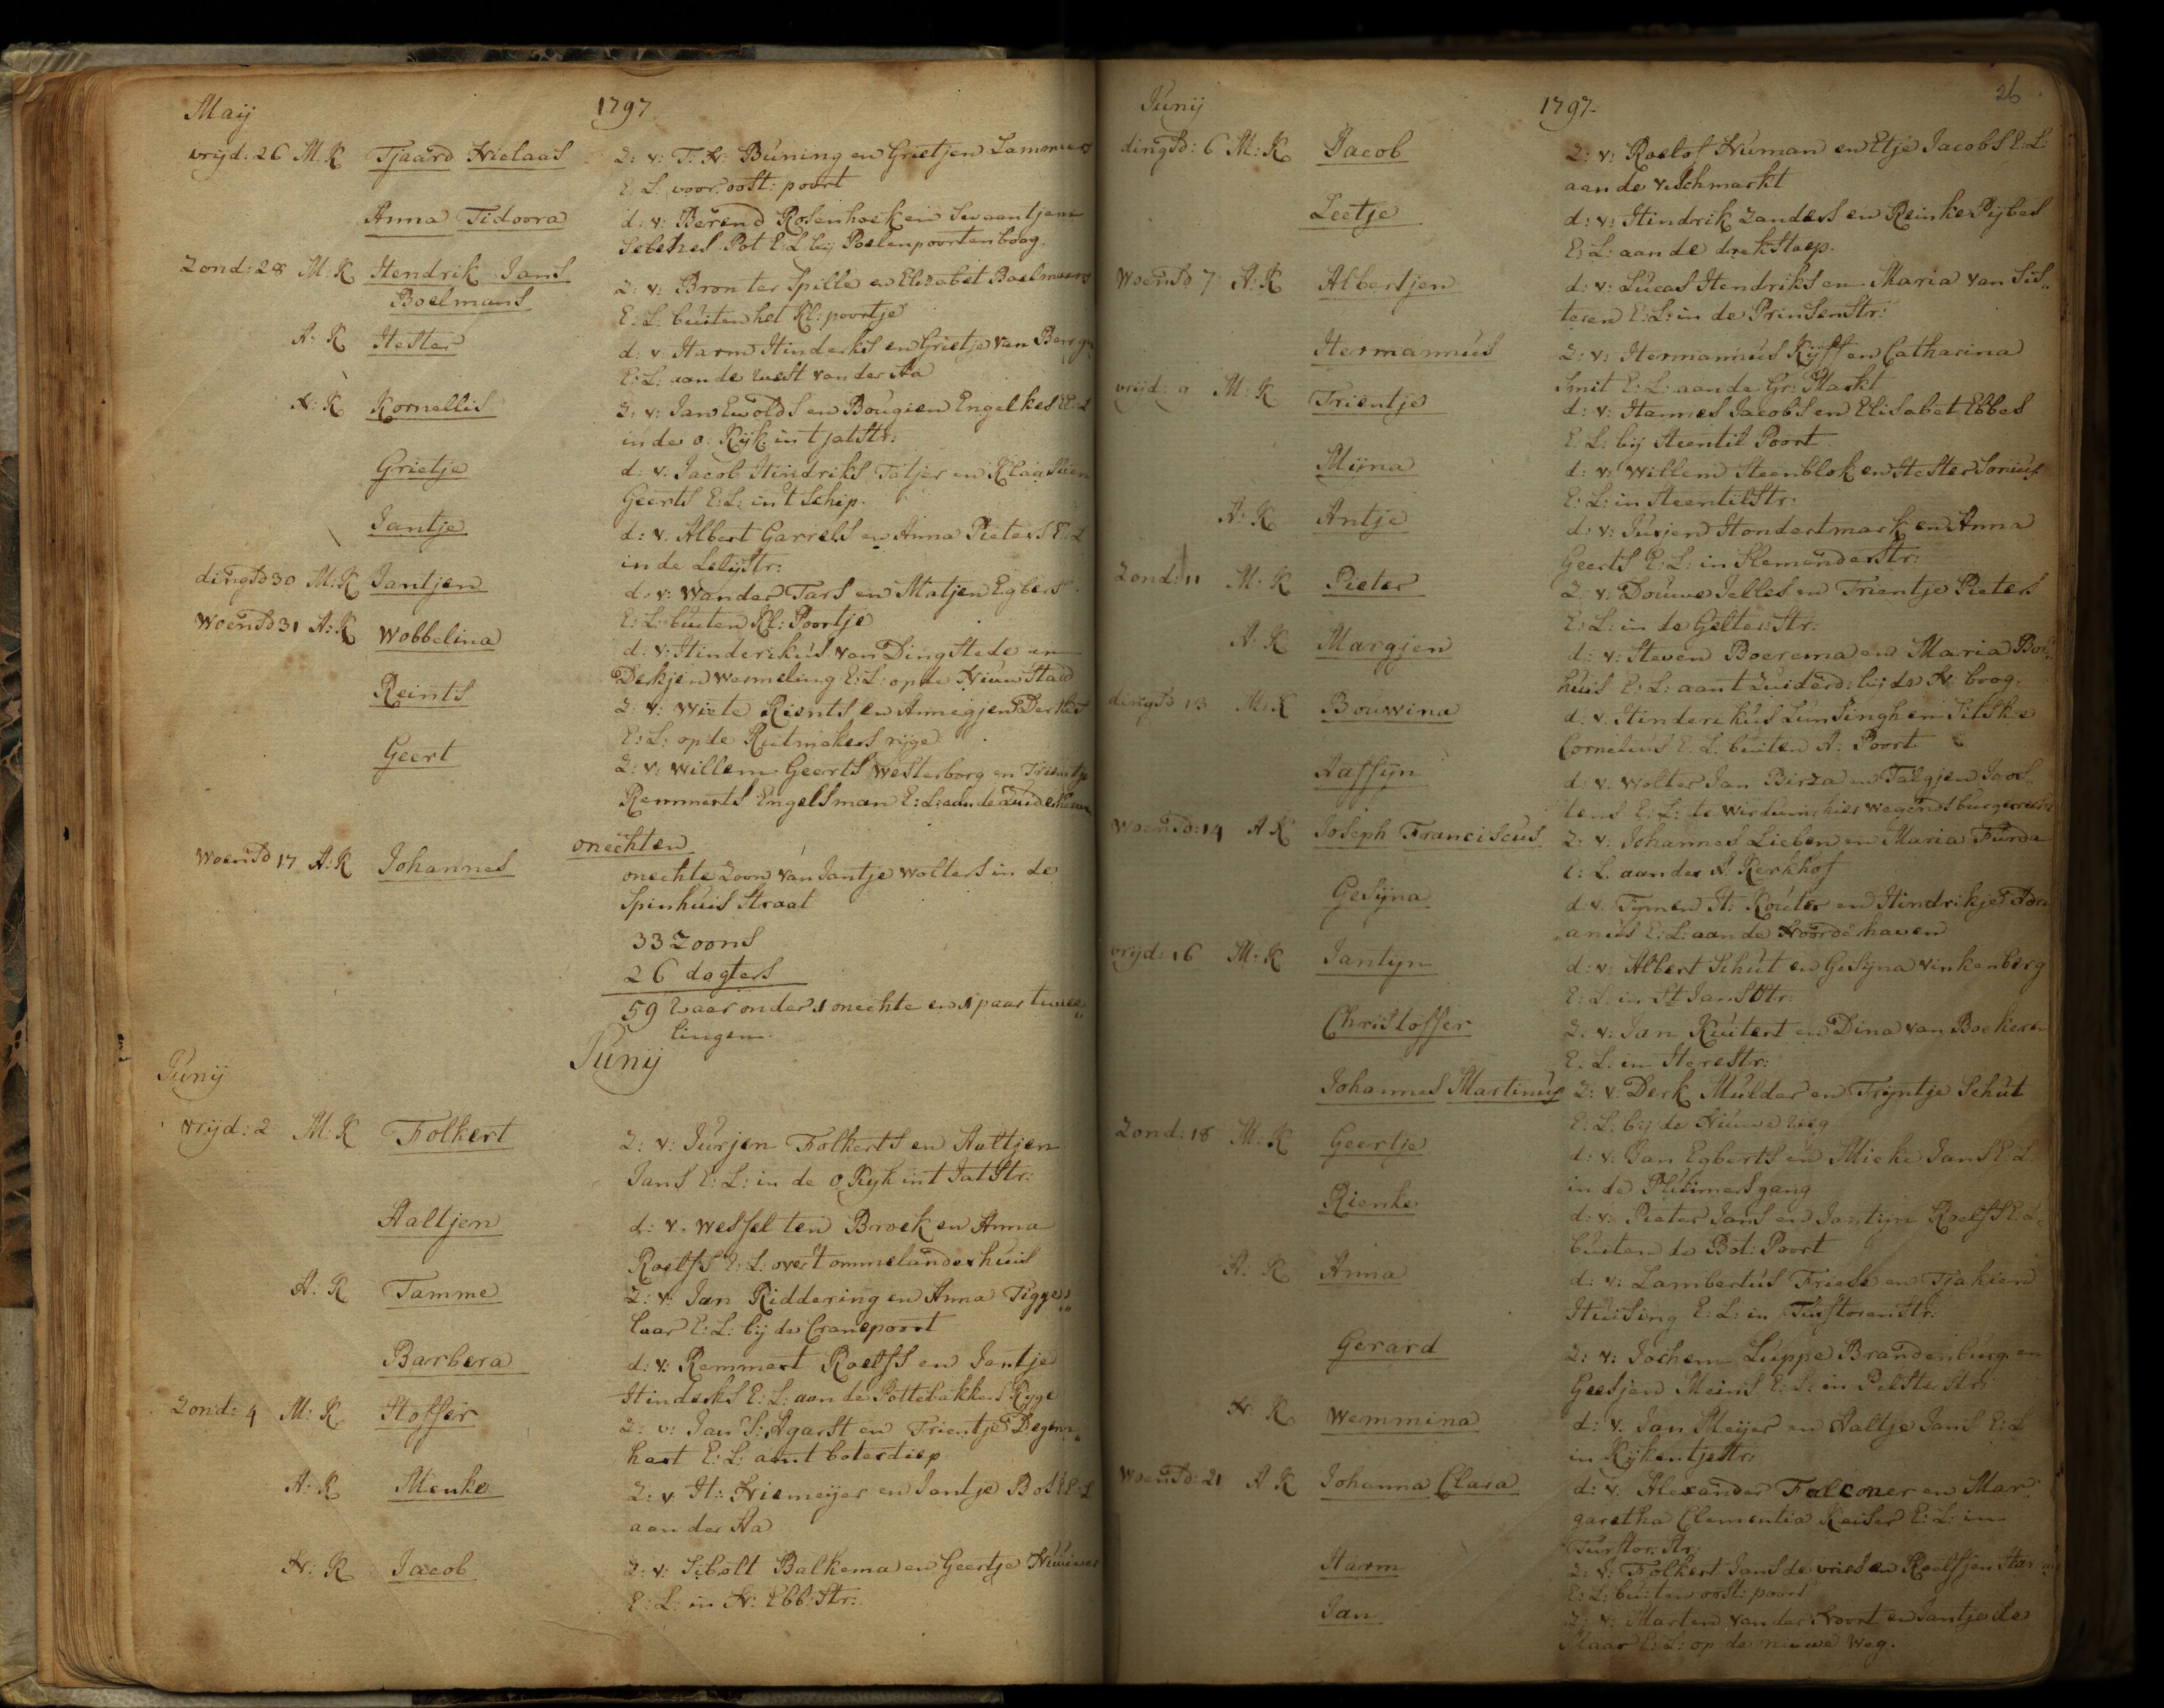 Maij 1797
vrijd: 26 M: K Tjaard Nielaas Z: v: T: N: Buning en Grietjen Lammers
E: L: voor oost: poort
Anna Tidoora d: v: Berend Rosenhoek en Swaantjen
Selehes Pot E: L bij Poelenpoortenboog.
Zond: 28 M: K Hendrik Jans Z: v: Bron ter Spille en Elisabet Boelmans
Boelmans E: L: buiten het Kl: poortje
A: K Hester d: v: Harm Hinderks en Grietje van Bergen
E: L: aan de west van der Aa
N: K Kornellis Z: v: Jan Ewolds en Bougien Engelkes E: L
in de o: Kijk in t jatstr:
Grietje d: v: Jacob Hindriks Tatjer en Klaassien
Geerts E: L: in 't Schip.
Jantje d: v: Albert Garrels en Anna Pieters E: L
in de Lelijstr:
dingsd 30 M: K Jantjen d: v: Wander Tars en Matjen Egbers
E: L: buiten Kl: Poortje
Woensd 31 A: K Wobbelina d: v: Hinderikus van Dingstede en
Derkjen Wermeling E: L: op de Nieuwstad
Reints Z: v: Wiete Rients en Annegjen Derks
E: L: op de Rutmakers rijge
Geert Z: v: Willem Geerts Westerborg en Trientje
Remmerts Engelsman E: L: aan de Zuiderhaven
onechten
Woensd 17 A: K Johannes onechte Zoon van Jantje Wolters in de
Spinhuis Straat
33 Zoons
26 dogters
59 waar onder 1 onechte en 1 paar twee,,
lingen
Junij
Junij
vrijd: 2 M: K Folkert Z: v: Jurjen Folkerts en Aaltjen
Jans E: L: in de o Kijk int Jatstr:
Aaltjen d: v: Wessel ten Broek en Anna
Roelfs E: L: over t ommelanderhuis
A: K Tamme Z: v: Jan Riddering en Anna Tigge,,
laar E: L: bij de Cranepoort
Barbera d: v: Remmert Roelfs en Jantje
Hinderks E: L: aan de Pottebakkers Ryge
Zond: 4 M: K Stoffer Z: v: Jan S: Agarst en Trientje Degen,,
hart E: L: aant boterdiep
A: K Menke Z: v: H: Niemeijer en Jantje Bos E: L
aan der Aa
N: K Jacob Z: v: Sibolt Balkema en Geertje
E: L: in N: Ebb: Str:
Junij 1797. 26
dingsd: 6 M: K Jacob Z: v: Roelof Numan en Etje Jacobs E: L:
aan de vischmarkt
Leetje d: v: Hindrik Zanders en Reinke Pijbes
E: L: aan de drekstoep.
Woensd 7 A: K Albertjen d: v: Lucas Hendriks en Maria van Sis,,
teren E: L: in de Prinsenstr:
Hermannus Z: v: Hermannus Kijff en Catharina
Smit E: L: aan de Gr: Markt
vrijd: 9 M: K Trientje d: v: Hannes Jacobs en Elisabet Ebbes
E: L: bij Steentil Poort
Mijna d: v: Willem Steenblok en Hester Sorius
E: L: in Steentilstr:
A: K Antje d: v: Jurjen Hondertmark en Anna
Geerts E: L: in Slemunderstr:
Zond: 11 M: K Pieter Z: v: Douwe Jelles en Trientje Pieters
E: L: in de Gelter: Str:
A: K Margjen d: v: Steven Boerema en Maria Bos,,
huis E: L: aant Zuiderd: bij de N: boog.
dingsd 13 M: K Bouwina d: v: Hinderikus Lunsingh en Silske
Cornelius E: L: buiten A: Poort
Aaffijn d: v: Wolter Jan Birza en Talgjen Joos,,
tens E: L: te Wirdum, hier wegens burgerrecht
Woensd: 14 A: K Joseph Franciscus Z: v: Johannes Lieben en Maria Furda
E: L: aan der A. Kerkhof
Gesijna d: v: Tymen H: Kouter en Hindrikje Adri
anus E: L: aan de Noorderhaven
vrijd: 16 M: K Jantijn d: v: Albert Schut en Gesijna Vinkenborg
E: L: in St Jans Str:
Christoffer Z: v: Jan Kuitert en Dina van Boekeren
E: L: in Herestr:
Johannes Martinus Z: v: Derk Mulder en Trijntje Schut
E: L: bij de Nieuwe weg
Zond: 18 M: K Geertje d: v: Jan Egberts en Mieke Jans E: L.
in de Pluimersgang
Rienke d: v: Pieter Jans en Jantijn Roelfs E: L:
buiten de Bot: Poort
A: K Anna d: v: Lambertus Friese en Tjakien
Huising E: L: in Turftorenstr:
Gerard Z: v: Jochem Luppe Brandenburg en
Geesjen Meins E: L: in Pelster Str:
N: K Wemmina d: v: Jan Meijer en Aaltje Jans E: L
in Kijkentjestr:
Woensd: 21 A: K Johanna Clara d: v: Alexander Falconer en Mar,,
garetha Clementia Keiser E: L: in
Turftor: Str:
Harm Z: v: Folkert Jans de Vries en Roelfjen
E: L: buiten oost: poort
Jan Z: v: Marten van der Noort en Jantje de
Maar E: L: op de nieuwe Weg.